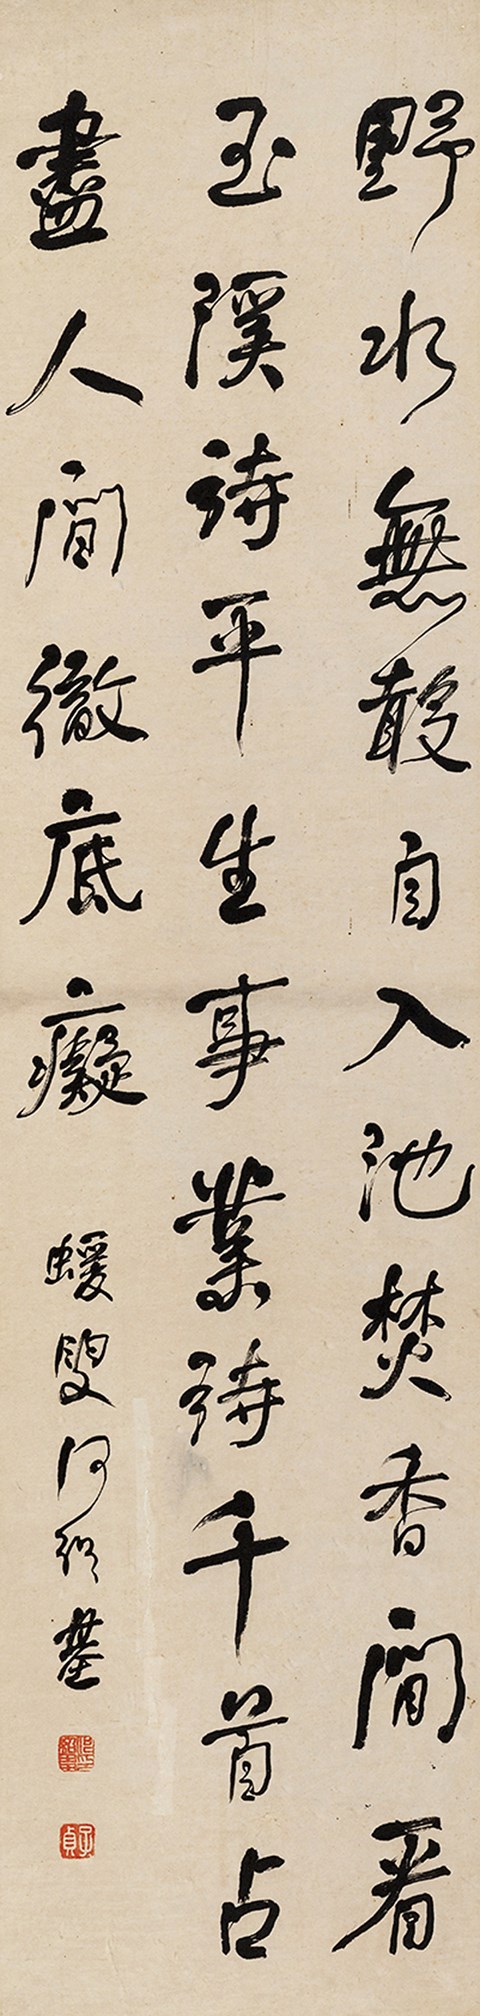 野水無聲自入池焚香閒看
玉溪詩平生事業詩千首占
盡人間徹底癡
蝯叟何紹基
子貞